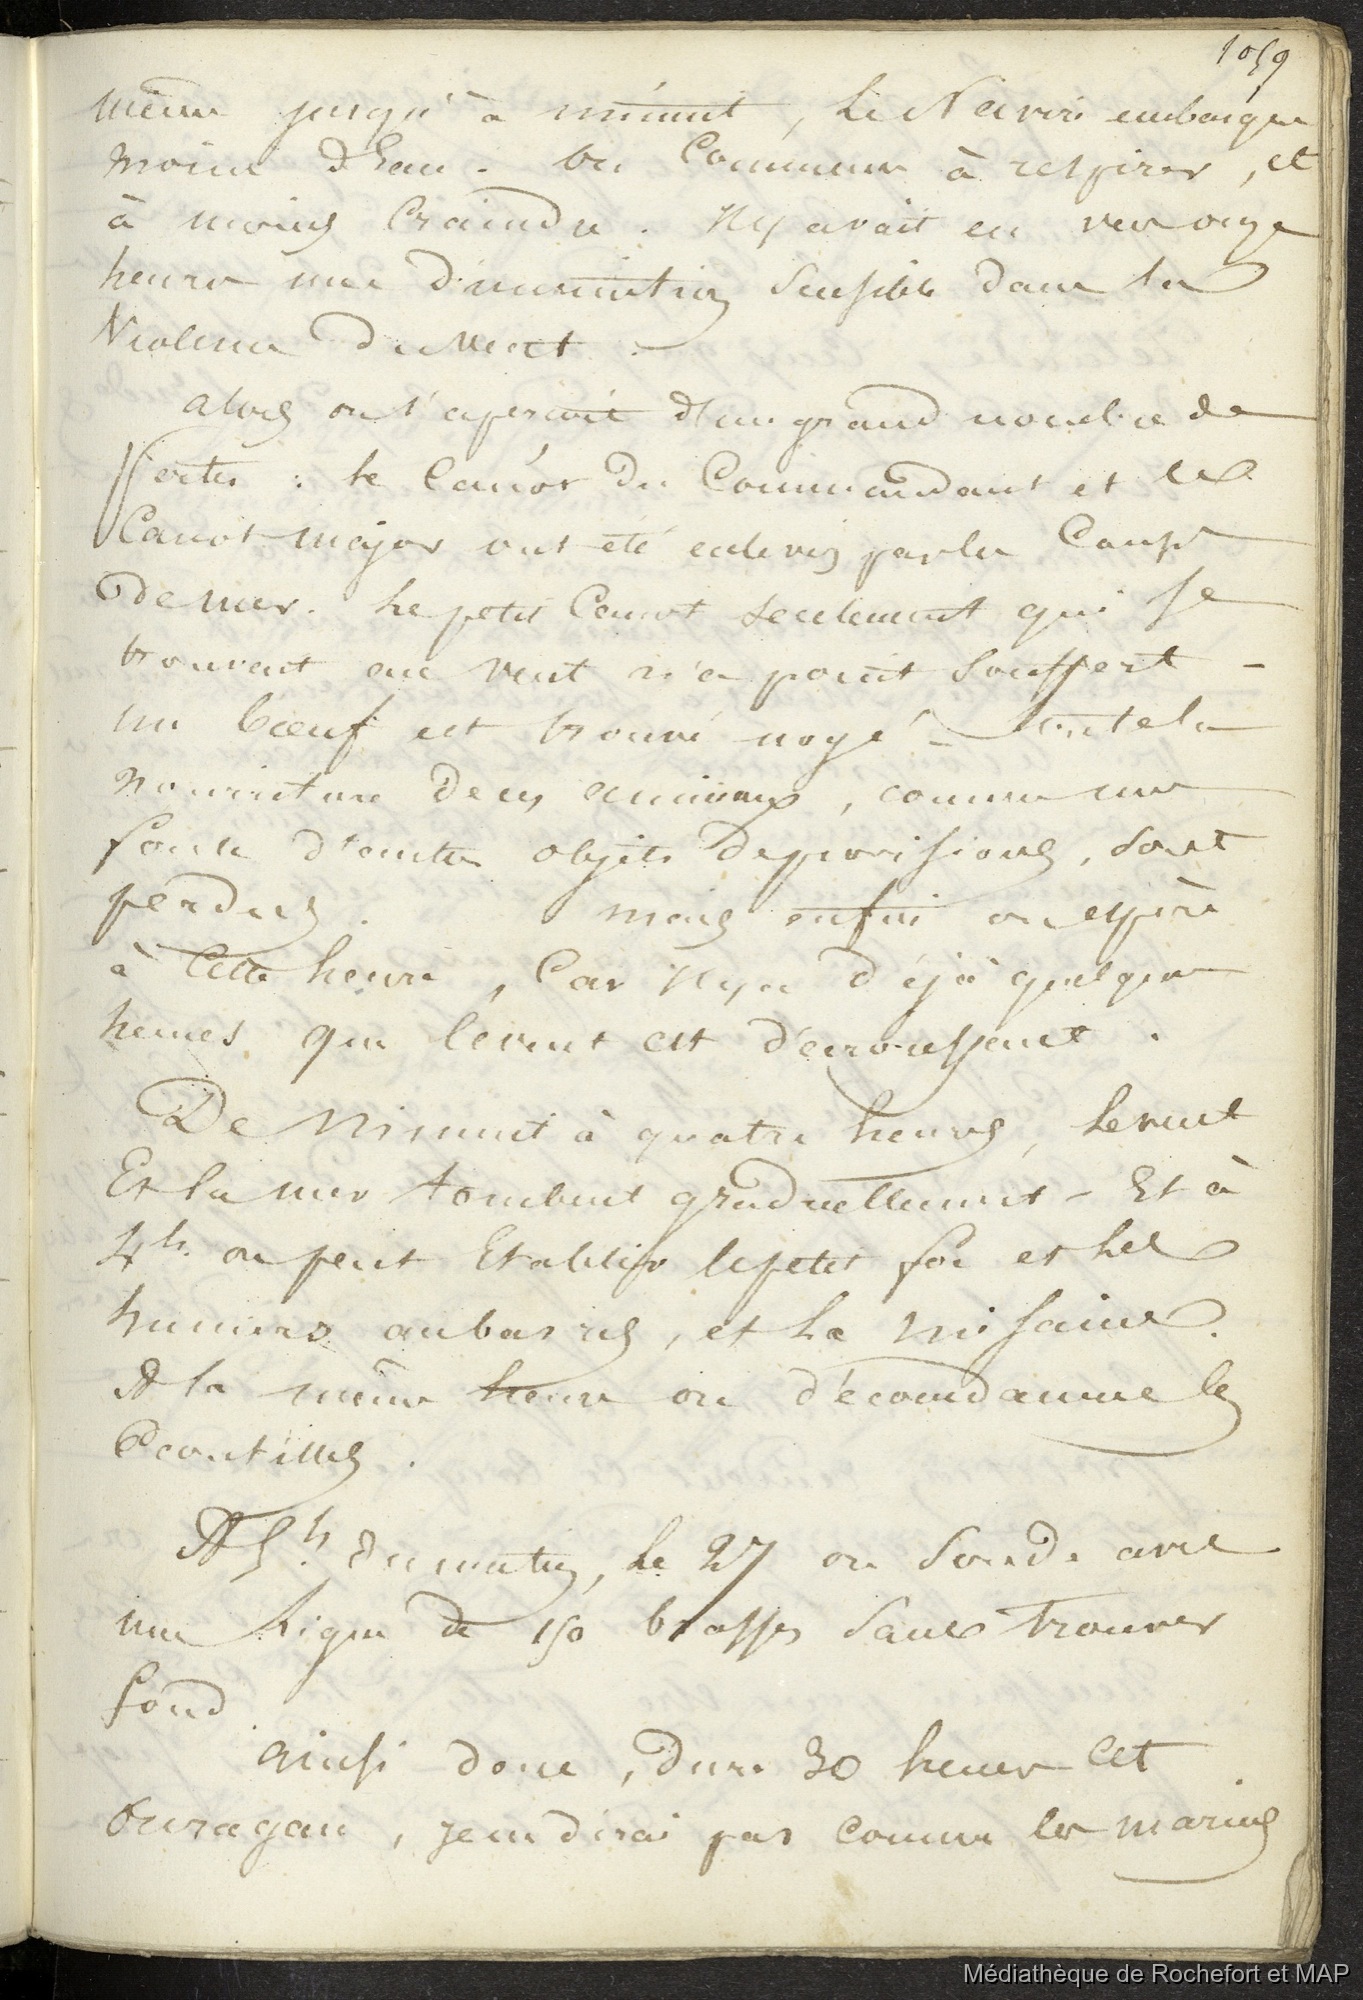 1059
même jusqu'à minuit, le Navire embarque
moins d'Eau. On Commence à respirer, et
à moins Craindre. Il y avait eu vers onze
heures une diminution Sensible dans la
Violence du Vent.
alors on s'aperçoit d'un grand nombre de
Pertes : le Canot du Commandant et le
Canot major ont été enlevés par les Coups
de mer. Le petit Canot seulement qui se
trouvait au vent n'a point Souffert -
un bœuf est trouvé noyé - toute la
nourriture de ces animaux, comme une
foule d'autres objets de provisions, sont
perdus. mais enfin on espère
à Cette heure, Car il y a déjà quelques
heures que le vent est décroissant.
De Minuit à quatre heures, le vent
Et la mer tombent graduellement - Et à
4h. on peut Etablir le petit foc et les
huniers au bas ris, et la misaine.
A la même heure on décondamne les
Ecoutilles.
A 5h du matin, le 27 on Sonde avec
une Ligne de 150 brasses Sans Trouver
fond
Ainsi donc, dura 30 heures Cet
Ouragan, je ne dirai pas comme les marins
Médiathèque de Rochefort et MAP